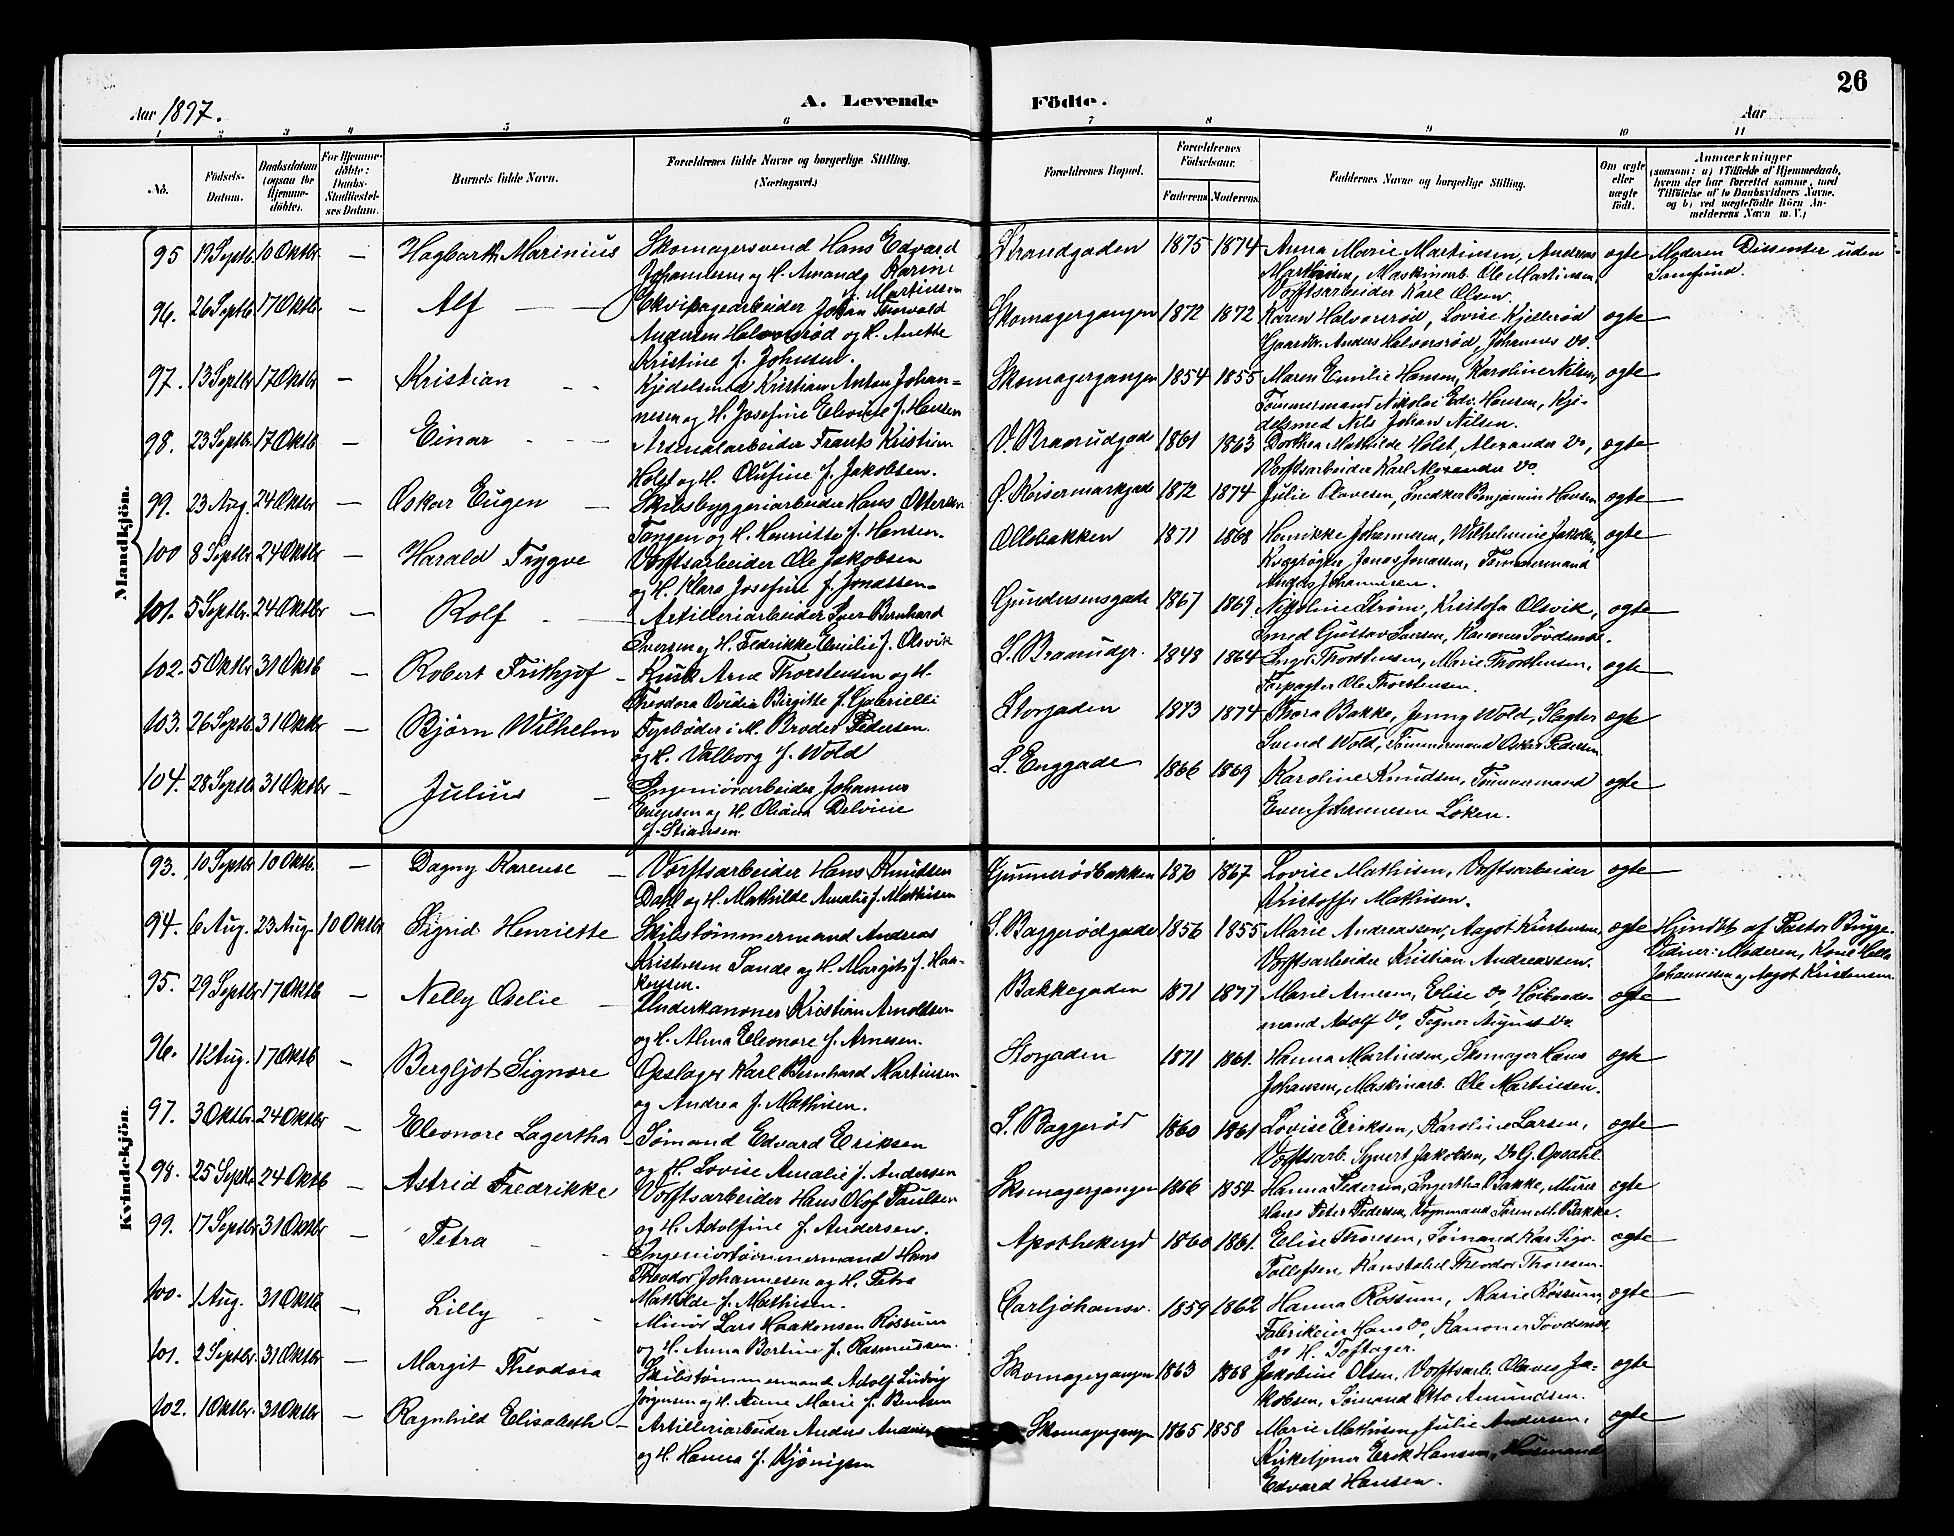 26
Aar 1897.
A. Levende Födte.
Aar
1 2 3 4 5 6 7 8 9 10 11
No.
Födsels-Datum.
Daabsdatum (ogsaa for Hjemme-döbte).
For Hjemme-döbte: Daabs-Stadfæstel-ses Datum.
Barnets fulde Navn.
Forældrenes fulde Navne og borgerlige Stilling. (Næringsvei.)
Forældrenes Bopæl.
Forældrenes Födselsaar.
Faderens Moderens
Faddernes Navne og borgerlige Stilling.
Om ægte eller uægte födt.
Anmærkninger
(saasom: a) i Tilfælde af Hjemmedaab, hvem der har forrettet samme, med Tilföielse af to Daabsvidners Navne. og b) ved uægtefödte Börn An-melderens Navn m. V.)
Mandkjön.
95 19 Septb. 10 Oktbr. — Hagbarth Marinius
Skomagersvend Hans Edvard
Johannesen og H. Amanda Karine
f. Martinsen
Strandgaden 1875 1874
Anna Marie Martinsen, Andreas
Martinsen, Maskinarb. Ole Martinsen,
Værftsarbeider Karl Olsen.
ægte
Moderen Dissenter uden
Samfund.
96. 26 Septb. 17 Oktbr. — Alf
Ekvipagearbeider Johan Thorvald
Andersen Halvorsrød og H. Anette
Kristine f. Johnsen.
Skomagergangen 1872 1872
Karen Halvorsrød, Lovise Kjellerød
Gaardbr. Anders Halvorsrød, Johannes Do.
ægte
97. 13 Septbr. 17 Oktbr. — Kristian
Kjedelsmed Kristian Anton Johan-
nesen og H. Josefine Elevine f. Hansen
Skomagergangen 1854 1855
Maren Emilie Hansen, Karoline Nilsen,
Tømmermand Nikolai Edv. Hansen, Kje-
delsmed Nils Johan Nilsen.
ægte
98. 23 Septbr. 17 Oktb. — Einar
Arsenalarbeider Frants Kristian
Holst og H. Olufine f. Jakobsen.
V. Braarudgade 1861 1863
Dorthea Mathilde Holst, Alexander Do,
Værftsarbeider Karl Alexander Do.
ægte
99. 23 Aug. 24 Oktbr — Oskar Eugen
Skibsbyggeriarbeider Hans
Tangen og H. Henriette f. Hansen.
Ø. Keisermarkgade 1872 1874
Julie Olavesen, Snedker Benjamin Hansen
ægte
100 8 Septbr 24 Oktbr — Harald Trygve
Værftsarbeider Ole Jakobsen
og H. Klara Josefine f. Jonassen.
Ollebakken 1871 1868
Henrikke Johannesen, Wilhelmine Jakobsen,
Jonas Jonassen, Tømmermand
Anders Johannesen.
ægte
101. 5 Septbr. 24 Oktbr. Rolf
Artilleriarbeider Iver Bernhard
Iversen og H. Fedrikke Emilie f. Olsvik
Gundersensgade 1867 1869.
Nikoline Strøm, Kristofa Olsvik,
Smed Gustav Larsen, Kanoner Tovdsnæs.
ægte
102. 5 Oktbr. 31 Oktb. — Robert Frithjof
Kusk Arne Thorstensen og H.
Theodora Ovidia Birgitte f. Gabrielli
L. Braarudgr. 1848 1864
Inga Thorstensen, Marie Thorstensen,
Forpagter Ole Thorstensen.
ægte
103. 26 Septb. 31 Oktbr — Bjørn Wilhelm
Fyrbøder i M. Broder Pedersen
og H. Valborg f. Wold
Storgaden 1873 1874
Thora Bakke, Jenny Wold, Slagter
Svend Wold, Tømmermand Oskar Pedersen
ægte
104. 28 Septbr 31 Oktbr. — Julius
Ingeniørarbeider Johannes
Evensen og H. Oliana Delvine
f. Stiansen
L. Enggade 1866 1869
Karoline Knudsen, Tømmermand
Even Johannesen Løken.
ægte
Kvindekjön.
93. 10 Septbr 10 Oktb. — Dagny Karense
Værftsarbeider Hans Knudsen
Dahl og H. Mathilde Amalie f. Mathisen
Gunnerødbakken 1870 1867
Lovise Mathisen, Værftsarbeider
Kristoffer Mathisen.
ægte
94. 6 Aug. 23 Aug. 10 Oktbr Sigrid Henriette
Skibstømmermand Andreas
Kristensen Sande og H. Margit f. Haa-
konsen.
S. Baggerødgade 1856 1855
Marie Andreassen, Aagot Kristensen,
Værftsarbeider Kristian Andreassen.
ægte
Hjmdbt af Pastor Bugge.
Vidner: Moderen, Kone Helle
Johannesen og Aagot Kristensen
95. 29 Septbr 17 Oktb — Nelly Oselie
Underkanoner Kristian Arnoldsen
og H. Alma Eleonore f. Arnesen.
Bakkegaden 1871 1877
Marie Arnesen, Elise Do, Høibaads-
mand Adolf Do, Tegner August Do.
ægte
96. 12 Aug. 17 Oktb — Bergljot Signore
Opslager Karl Bernhard Martinsen
og Andrea f. Mathisen.
Storgaden 1871 1861.
Hanna Martinsen, Skomager Hans
Johansen, Maskinarb. Ole Martinsen.
ægte
97. 3 Oktbr. 24 Oktbr. — Eleonore Lagertha
Sømand Edvard Eriksen
og H. Lovise Amalie f. Andersen
S. Baggerød 1860 1861
Lovise Eriksen, Karoline Larsen,
Værftsarb. Syvert Jakobsen, Do G. Opdahl.
ægte
98. 25 Septb. 24 Oktb — Astrid Fredrikke
Værftsarbeider Hans Olaf Paulsen
og H. Adolfine f. Andersen.
Skomagergangen 1866 1854
Hanna Pedersen, Ingertha Bakke, Murer
Hans Peter Pedersen, Vognmand Søren M. Bakke.
ægte
99. 17 Septbr 31 Oktbr. — Petra
Ingeniørtømmermand Hans
Theodor Johannesen og H. Petra
Mathilde f. Mathisen.
Apothekergd 1860 1861.
Elise Thoresen, Sømand Karl Sigv.
Tollefsen, Konstabel Theodor Thoresen.
ægte
100. 1 Aug. 31 Oktbr — Lilly
Minør Lars Haakonsen Røssum
og H. Anna Bertine f. Rasmussen.
Carljohansv. 1859 1862
Hanna Røssum, Marie Røssum,
Fabrikeier Hans Do, Kanoner Tovdsnæs,
Do H. Toftager.
ægte
101. 2 Septbr. 31 Oktbr. — Margit Theodora
Skibstømmermand Adolf Ludvig
Jørgensen og H. Anne Marie f. Berntsen
Skomagergangen 1863 1868
Jakobine Olsen, Værftsarb. Olaves Ja-
kobsen, Sømand Otto Amundsen.
ægte
102. 1 Oktbr. 31 Oktbr — Ragnhild Elisabeth
Artilleriarbeider Anders Andersen
og H. Hanna f. Kjønigsen
Skomagergangen 1865 1858
Marie Mathisen, Julie Andersen,
Kirketjener Erik Hansen, Husmand
Edvard Hansen.
ægte